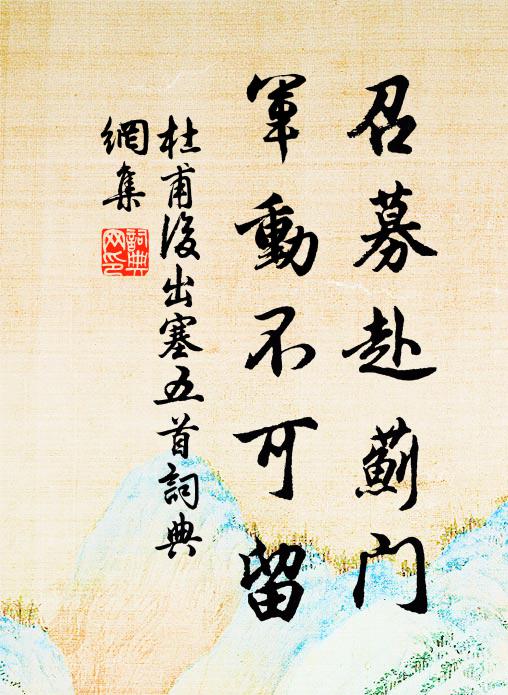 召募赴薊门
軍動不可留
杜甫後出塞五首詞典
網集
詞典
网印